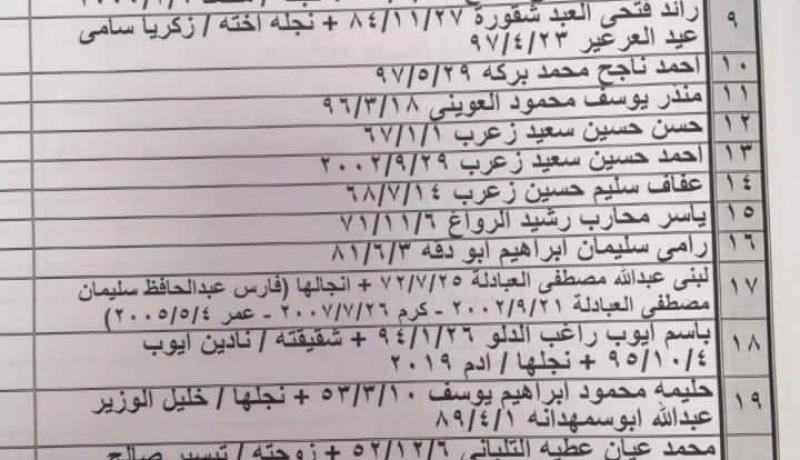 ٩ رائد فتحى العبد شقورة ٨٤/١١/٢٧ + نجله اخته / زكريا سامى
عيد العرعير ٩٧/٤/٢٣
١٠ احمد ناجح محمد بركه ٩٧/٥/٢٩
١١ منذر يوسف محمود العوينى ٩٦/٣/١٨
١٢ حسن حسين سعيد زعرب ٦٧/١/١
١٣ احمد حسين سعيد زعرب ٢٠٠٢/٩/٢٩
١٤ عفاف سليم حسين زعرب ٦٨/٧/١٤
١٥ ياسر محارب رشيد الرواغ ٧١/١١/٦
١٦ رامى سليمان ابراهيم ابو دقه ٨١/٦/٣
١٧ لبنى عبدالله مصطفى العبادلة ٧٢/٧/٢٥ + انجالها (فارس عبدالحافظ سليمان
مصطفى العبادلة ٢٠٠٢/٩/٢١ - كرم ٢٠٠٧/٧/٢٦ - عمر ٢٠٠٥/٥/٤)
١٨ باسم ايوب راغب الدلو ٩٤/١/٢٦ + شقيقته / نادين ايوب
٩٥/١٠/٤ + نجلها / ادم ٢٠١٩
١٩ حليمه محمود ابراهيم يوسف ٥٣/٣/١٠ + نجلها / خليل الوزير
عبدالله ابوسمهدانه ٨٩/٤/١
محمد عيان عطيه التلبانى ٥٢/١٢/٦ + زوجته / تيسير صالح